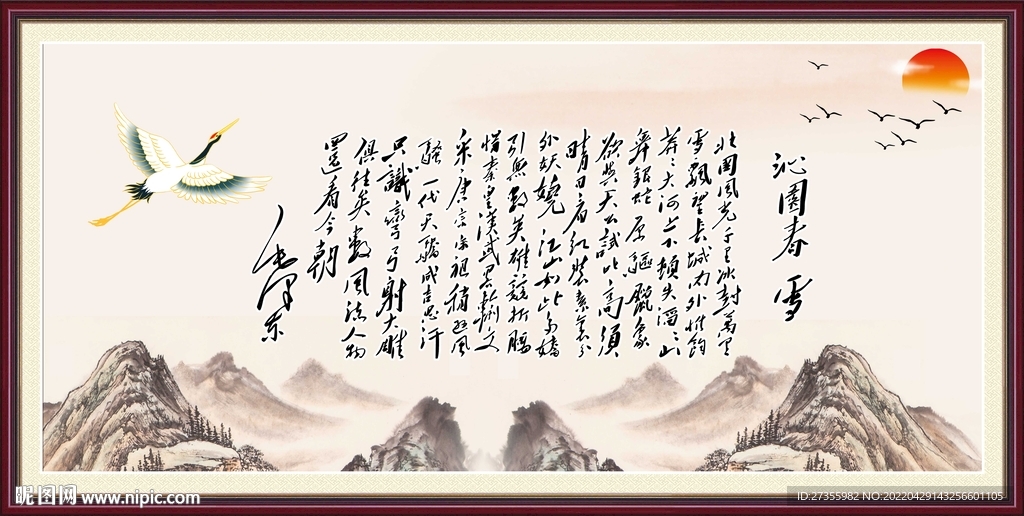 沁園春 雪
北國風光千里冰封萬里
雪飄望長城內外惟餘
莽〻大河上下頓失滔〻山
舞銀蛇原驅臘象
欲與天公試比高須
晴日看紅裝素裹分
外妖嬈江山如此多嬌
引無數英雄競折腰
惜秦皇漢武略輸文
采唐宗宋祖稍遜風
騷一代天驕成吉思汗
只識彎弓射大雕
俱往矣數風流人物
還看今朝
毛澤東
昵图网 www.nipic.com
ID:27355982 NO:20220429143256601105